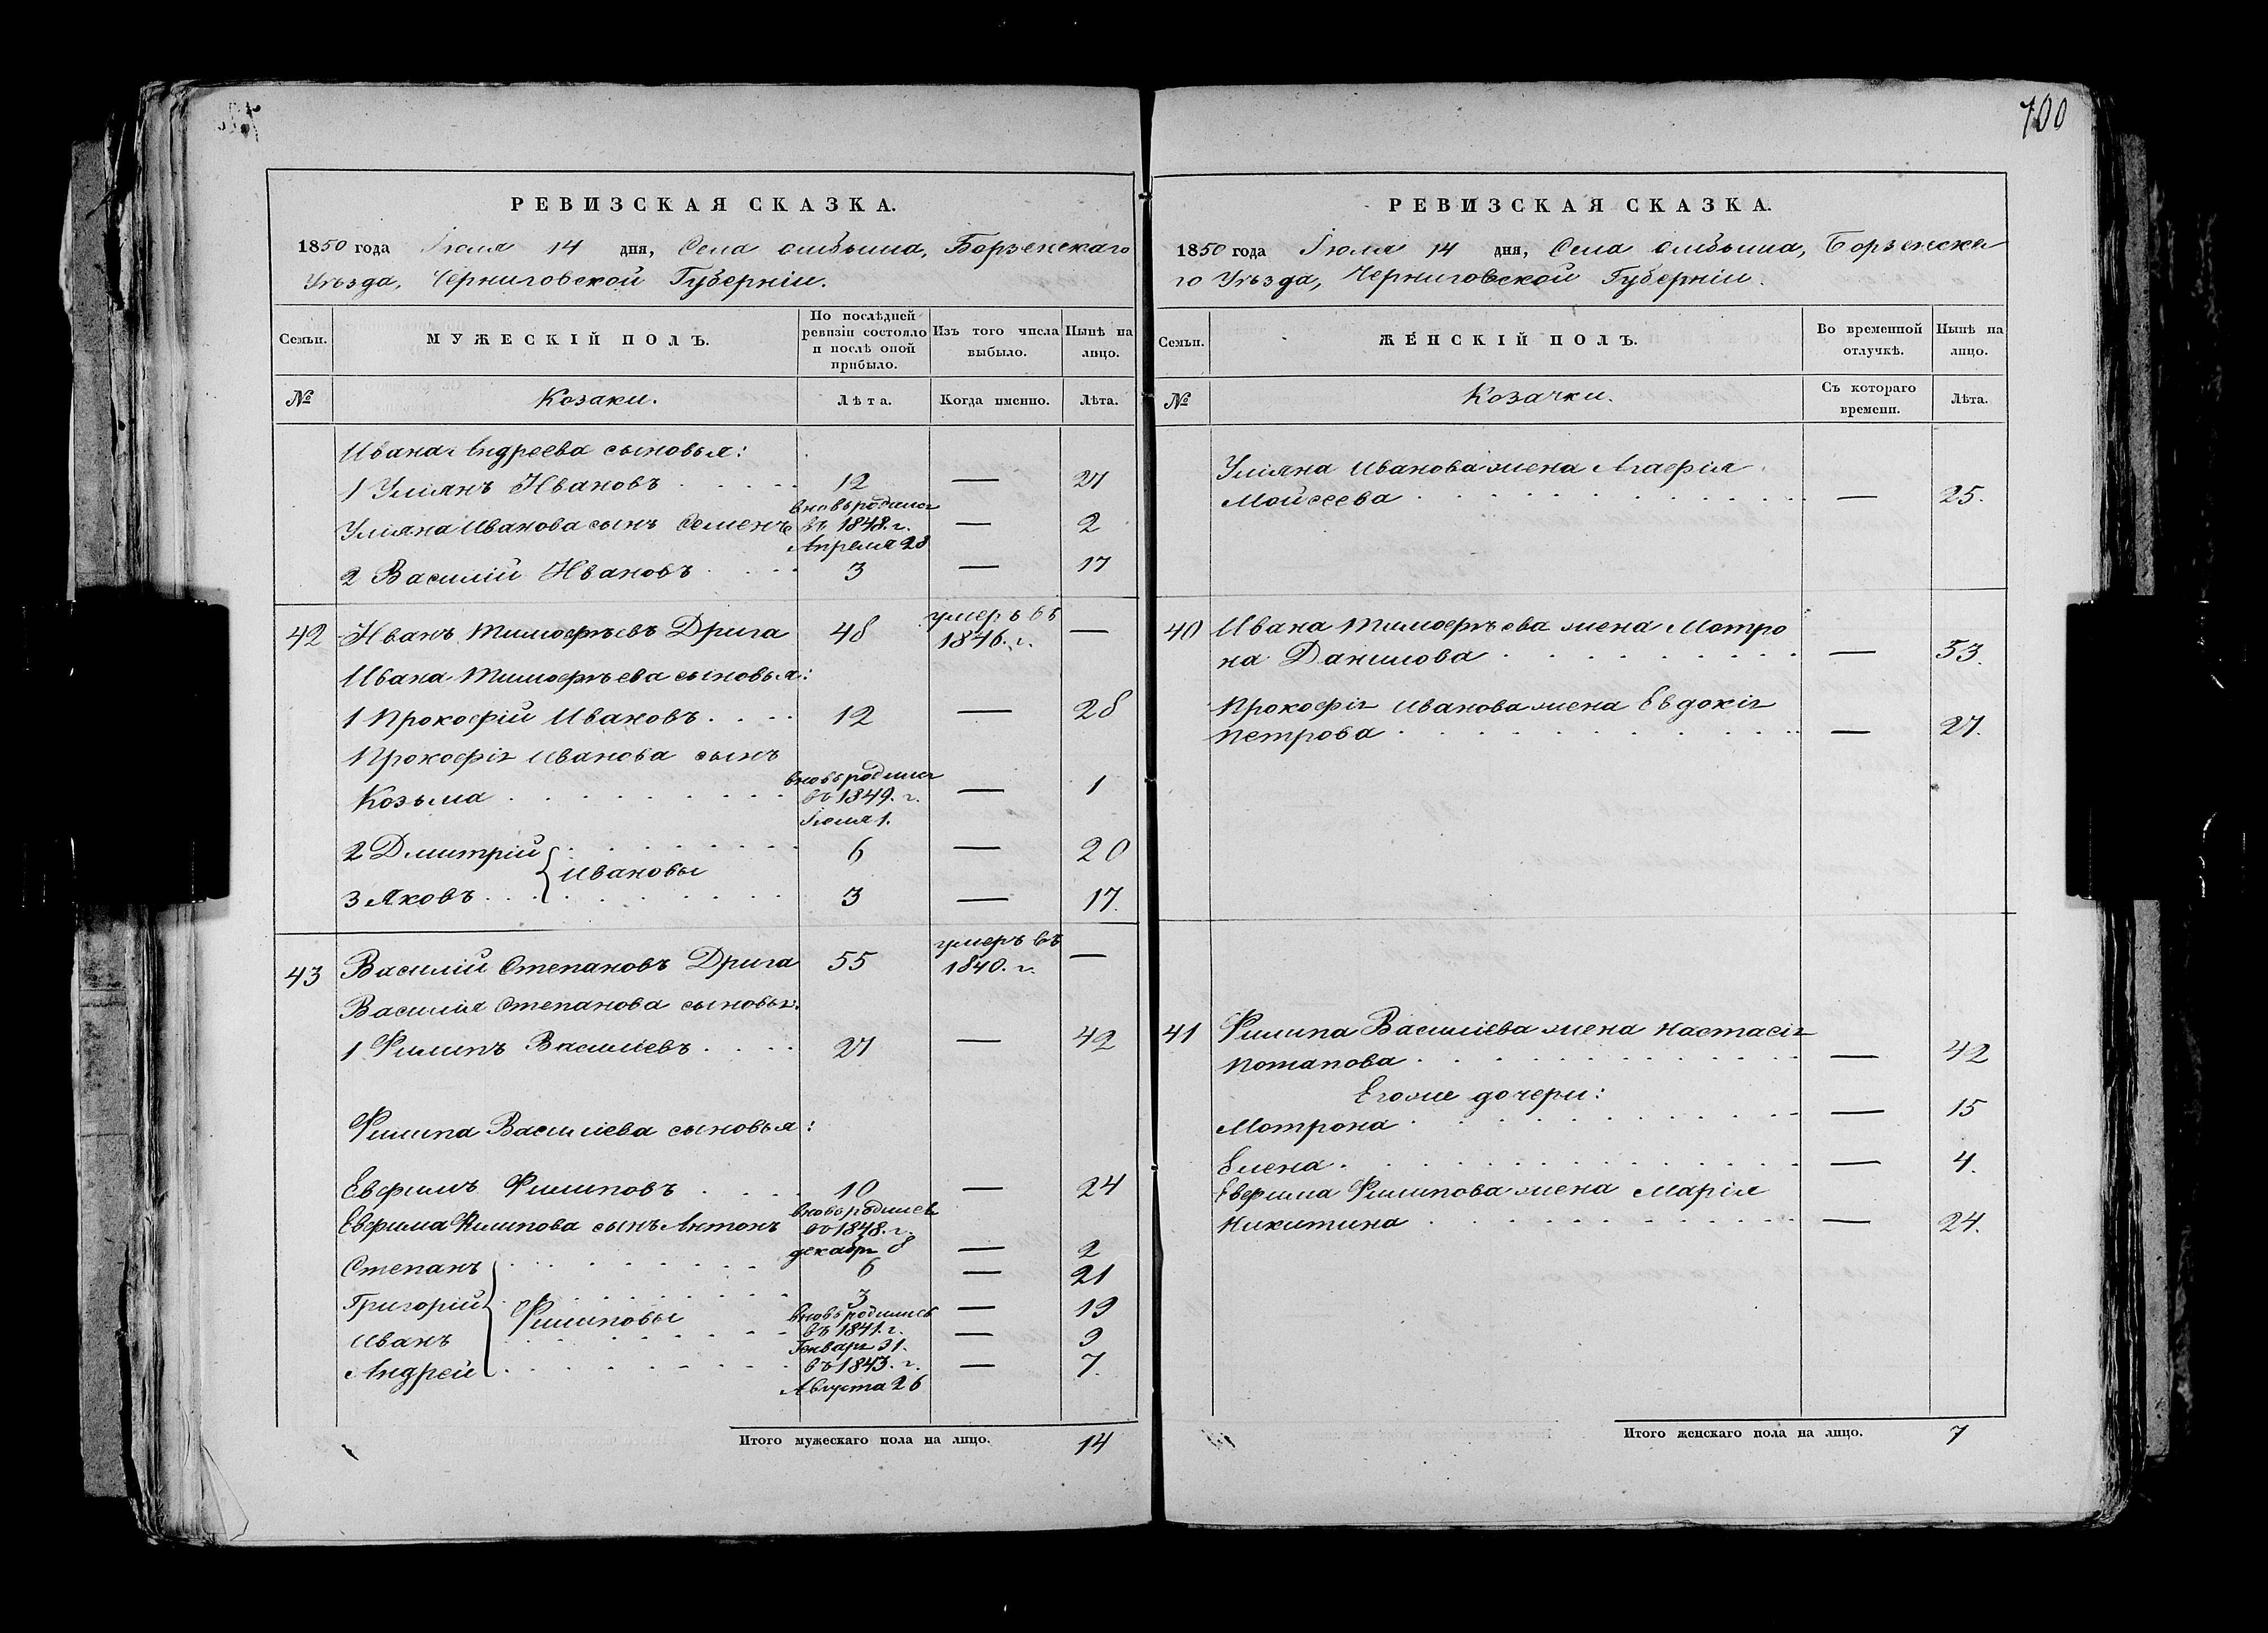 РЕВИЗСКАЯ СКАЗКА.
1850 года Іюля 14 дня, Села Омбыша, Борзенскаго
Уѣзда, Черниговской Губерніи.
Семьи.
МУЖЕСКІЙ ПОЛЪ.
По послѣдней
ревизіи состояло
и послѣ оной
прибыло.
Изъ того числа
выбыло.
Нынѣ на
лицо.
№
Козаки.
Лѣта.
Когда именно.
Лѣта.
Ивана Андреева сыновья:
1 Уліянъ Ивановъ 12 — 27
Уліяна Иванова сынъ Семенъ
вновь родился
въ 1848. г.
Апреля 28
— 2
2 Василій Ивановъ 3 — 17
42 Иванъ Тимофѣевъ Дрига 48
умеръ въ
1846. г.
—
Ивана Тимофѣева сыновья:
1 Прокофій Ивановъ 12 — 28
Прокофія Иванова сынъ
Козьма
вновь родился
въ 1849. г.
— 1
2 Дмитрій 6 — 20
Ивановы
3 Яковъ 3 — 17.
43 Василій Степановъ Дрига 55
умеръ въ
1840. г.
—
Василія Степанова сыновья:
1 Филипъ Василіевъ 27 — 42
Филипа Василіева сыновья:
Евфимъ Филиповъ 10 — 24
Евфима Филипова сынъ Антонъ
вновь родился
въ 1848. г.
декабря 8
— 2
Степанъ 6 — 21
Григорій 3 — 19
Филиповы
Иванъ
вновь родились
въ 1841. г.
Генваря 31.
— 9
Андрей
въ 1843. г.
Августа 26
— 7.
Итого мужескаго пола на лицо. 14
100
РЕВИЗСКАЯ СКАЗКА.
1850 года Іюля 14 дня, Села Омбыша, Борзенска
го Уѣзда, Черниговской Губерніи.
Семьи.
ЖЕНСКІЙ ПОЛЪ.
Во временной
отлучкѣ.
Нынѣ на
лицо.
№
Козачки.
Съ котораго
времени.
Лѣта.
Уліяна Иванова жена Агафія
Мойсеева — 25.
40 Ивана Тимофѣева жена Мотро
на Данилова — 53.
Прокофія Иванова жена Евдокія
Петрова — 27.
41 Филипа Василіева жена Настасія
Потапова — 42
Егоже дочери:
Мотрона — 15
Елена — 4.
Евфима Филипова жена Марія
Никитина — 24.
Итого женскаго пола на лицо. 7